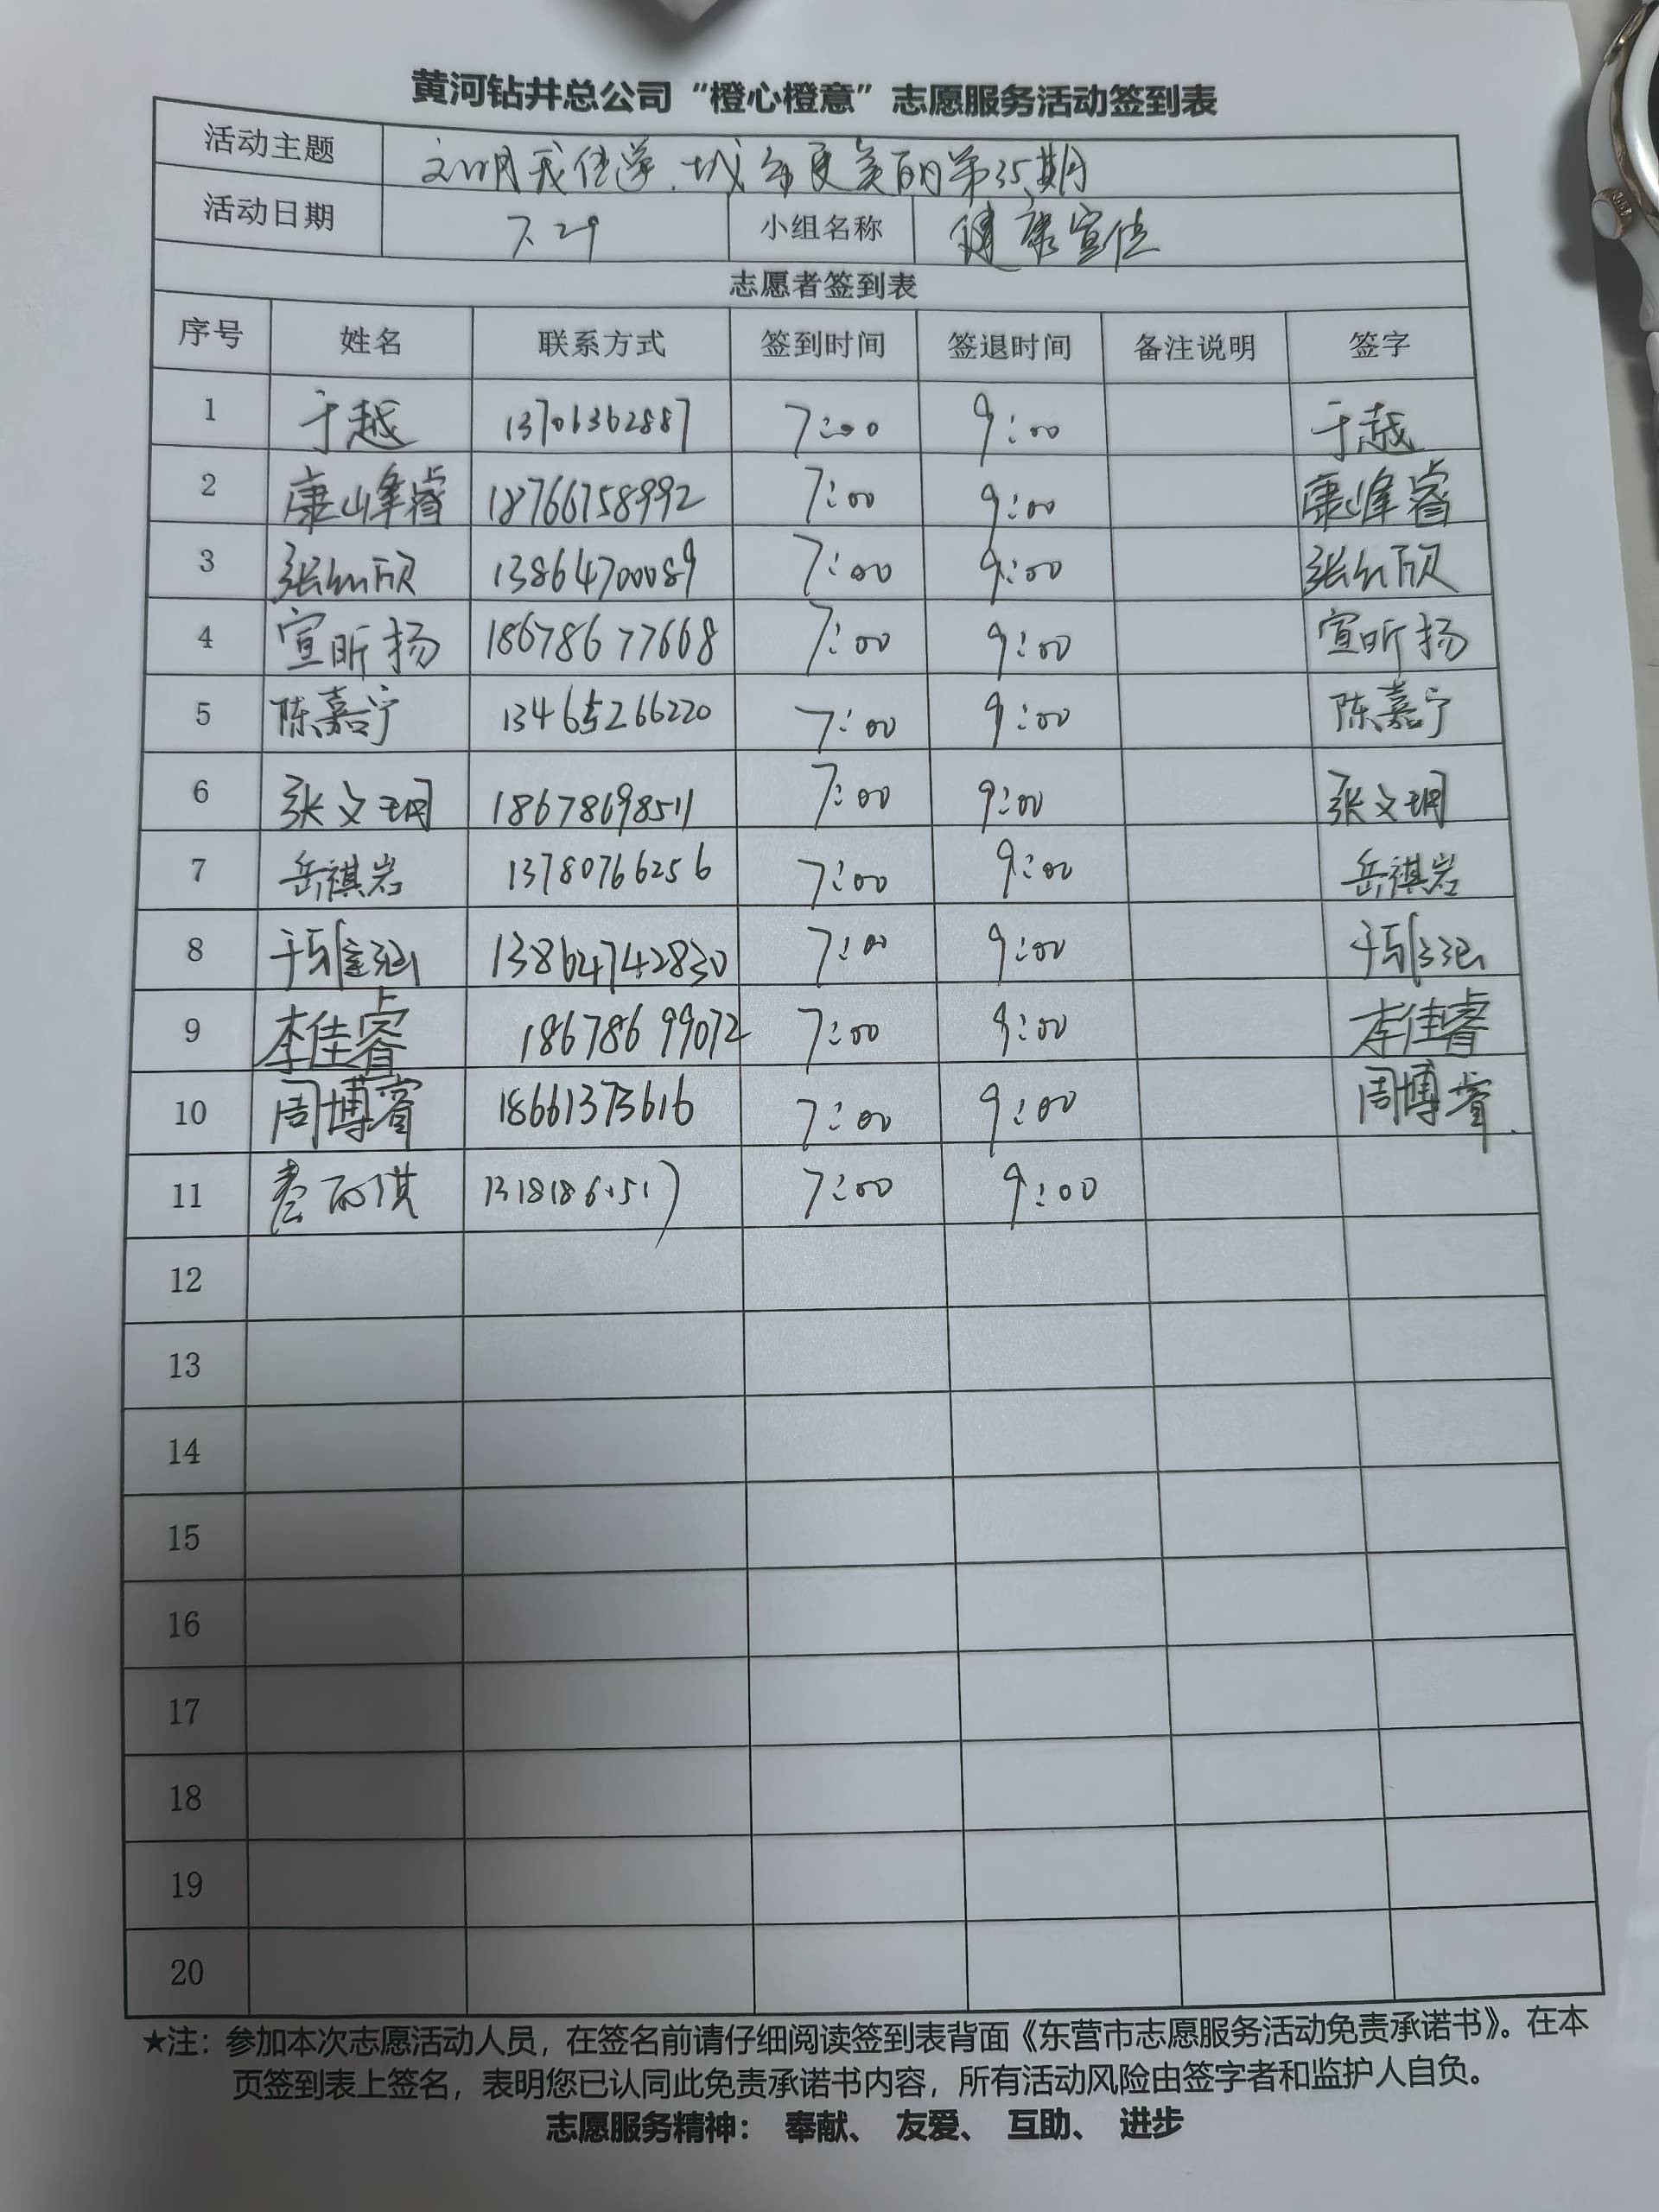 黄河钻井总公司“橙心橙意”志愿服务活动签到表
活动主题 文明我传递.城市更美丽第35期
活动日期 7.29 小组名称 健康宣传
志愿者签到表
序号 姓名 联系方式 签到时间 签退时间 备注说明 签字
1 于越 13706362887 7:00 9:00 于越
2 康峰睿 18766758992 7:00 9:00 康峰睿
3 13864700089 7:00 9:00
4 宣昕扬 18678677668 7:00 9:00 宣昕扬
5 陈嘉宁 13465266220 7:00 9:00 陈嘉宁
6 张文玥 18678698511 7:00 9:00 张文玥
7 岳祺岩 13780766256 7:00 9:00 岳祺岩
8 13864742830 7:00 9:00
9 李佳睿 18678699072 7:00 9:00 李佳睿
10 周博睿 18661373616 7:00 9:00 周博睿
11 7:00 9:00
12
13
14
15
16
17
18
19
20
★注：参加本次志愿活动人员，在签名前请仔细阅读签到表背面《东营市志愿服务活动免责承诺书》。在本
页签到表上签名，表明您已认同此免责承诺书内容，所有活动风险由签字者和监护人自负。
志愿服务精神： 奉献、 友爱、 互助、 进步